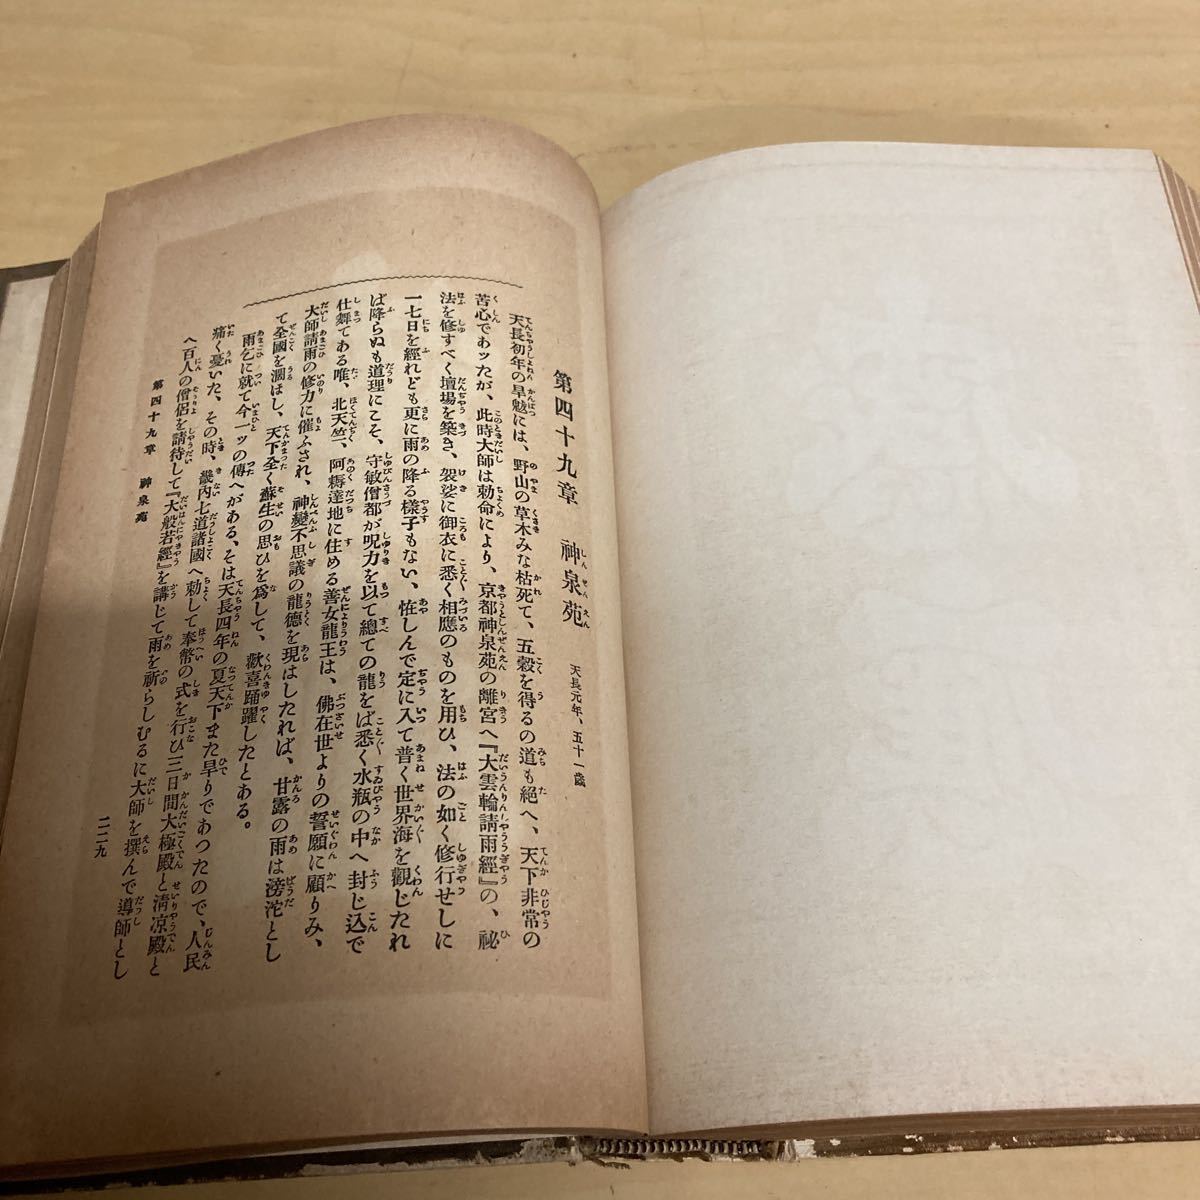 第四十九章　神泉苑　天長元年、五十一歲
天長初年の旱魃には、野山の草木みな枯死て、五穀を得るの道も絶へ、天下非常の
苦心であッたが、此時大師は勅命により、京都神泉苑の離宮へ『大雲輪請雨經』の、祕
法を修すべく壇場を築き、袈裟に御衣に悉く相應のものを用ひ、法の如く修行せしに
一七日を經れども更に雨の降る樣子もない、恠しんで定に入て普く世界海を觀じたれ
ば降らぬも道理にこそ、守敏僧都が呪力を以て總ての龍をば悉く水瓶の中へ封じ込で
仕舞てある唯、北天竺、阿耨達地に住める善女龍王は、佛在世よりの誓願に顧りみ、
大師請雨の修力に催ふされ、神變不思議の龍德を現はしたれば、甘露の雨は滂沱とし
て全國を濶ほし、天下全く蘇生の思ひを爲して、歡喜踊躍したとある。
雨乞に就て今一ッの傳へがある、そは天長四年の夏天下また旱りであつたので、人民
痛く憂いた、その時、畿內七道諸國へ勅して奉幣の式を行ひ三日間大極殿と淸凉殿と
へ百人の僧侶を請待して『大般若經』を講じて雨を祈らしむるに大師を撰んで導師とし
第四十九章　神泉苑
二二九